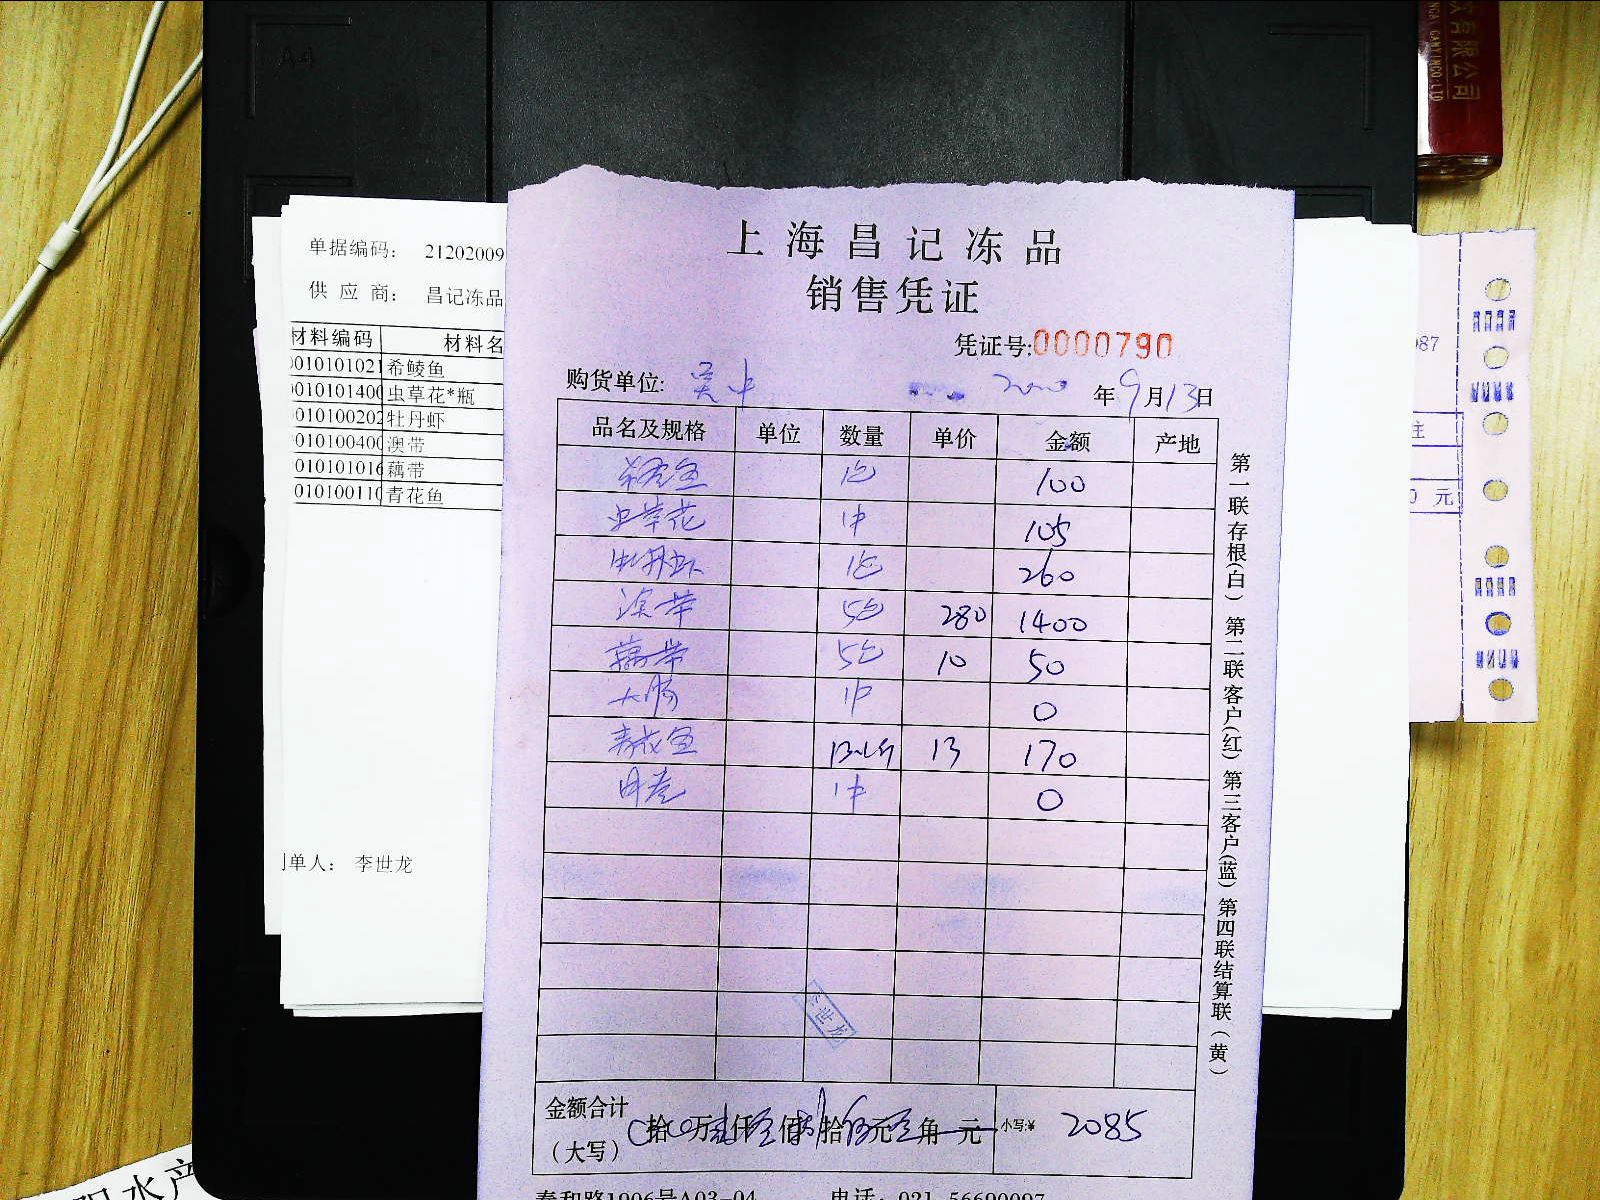 上海昌记冻品
销售凭证
凭证号:0000790
购货单位: 吴中 2020年9月13日
品名及规格 单位 数量 单价 金额 产地
希鲮鱼 1包 100
虫草花 1件 105
牡丹虾 1包 260
澳带 5包 280 1400
藕带 5包 10 50
大肠 1件 0
青花鱼 13.1斤 13 170
1件 0
金额合计
(大写) 拾 万 仟 佰 拾 元 角 元 小写:¥ 2085
泰和路1906号A03-04 电话: 021-56690097
第一联存根(白) 第二联客户(红) 第三客户(蓝) 第四联结算联(黄)
世龙
单据编码: 21202009
供应商: 昌记冻品
材料编码 材料名
010101021 希鲮鱼
010101400 虫草花*瓶
010100202 牡丹虾
010100400 澳带
010101016 藕带
010100110 青花鱼
单人: 李世龙
有限公司
CANYINCO.,LTD
087
注
0 元
水产
A4